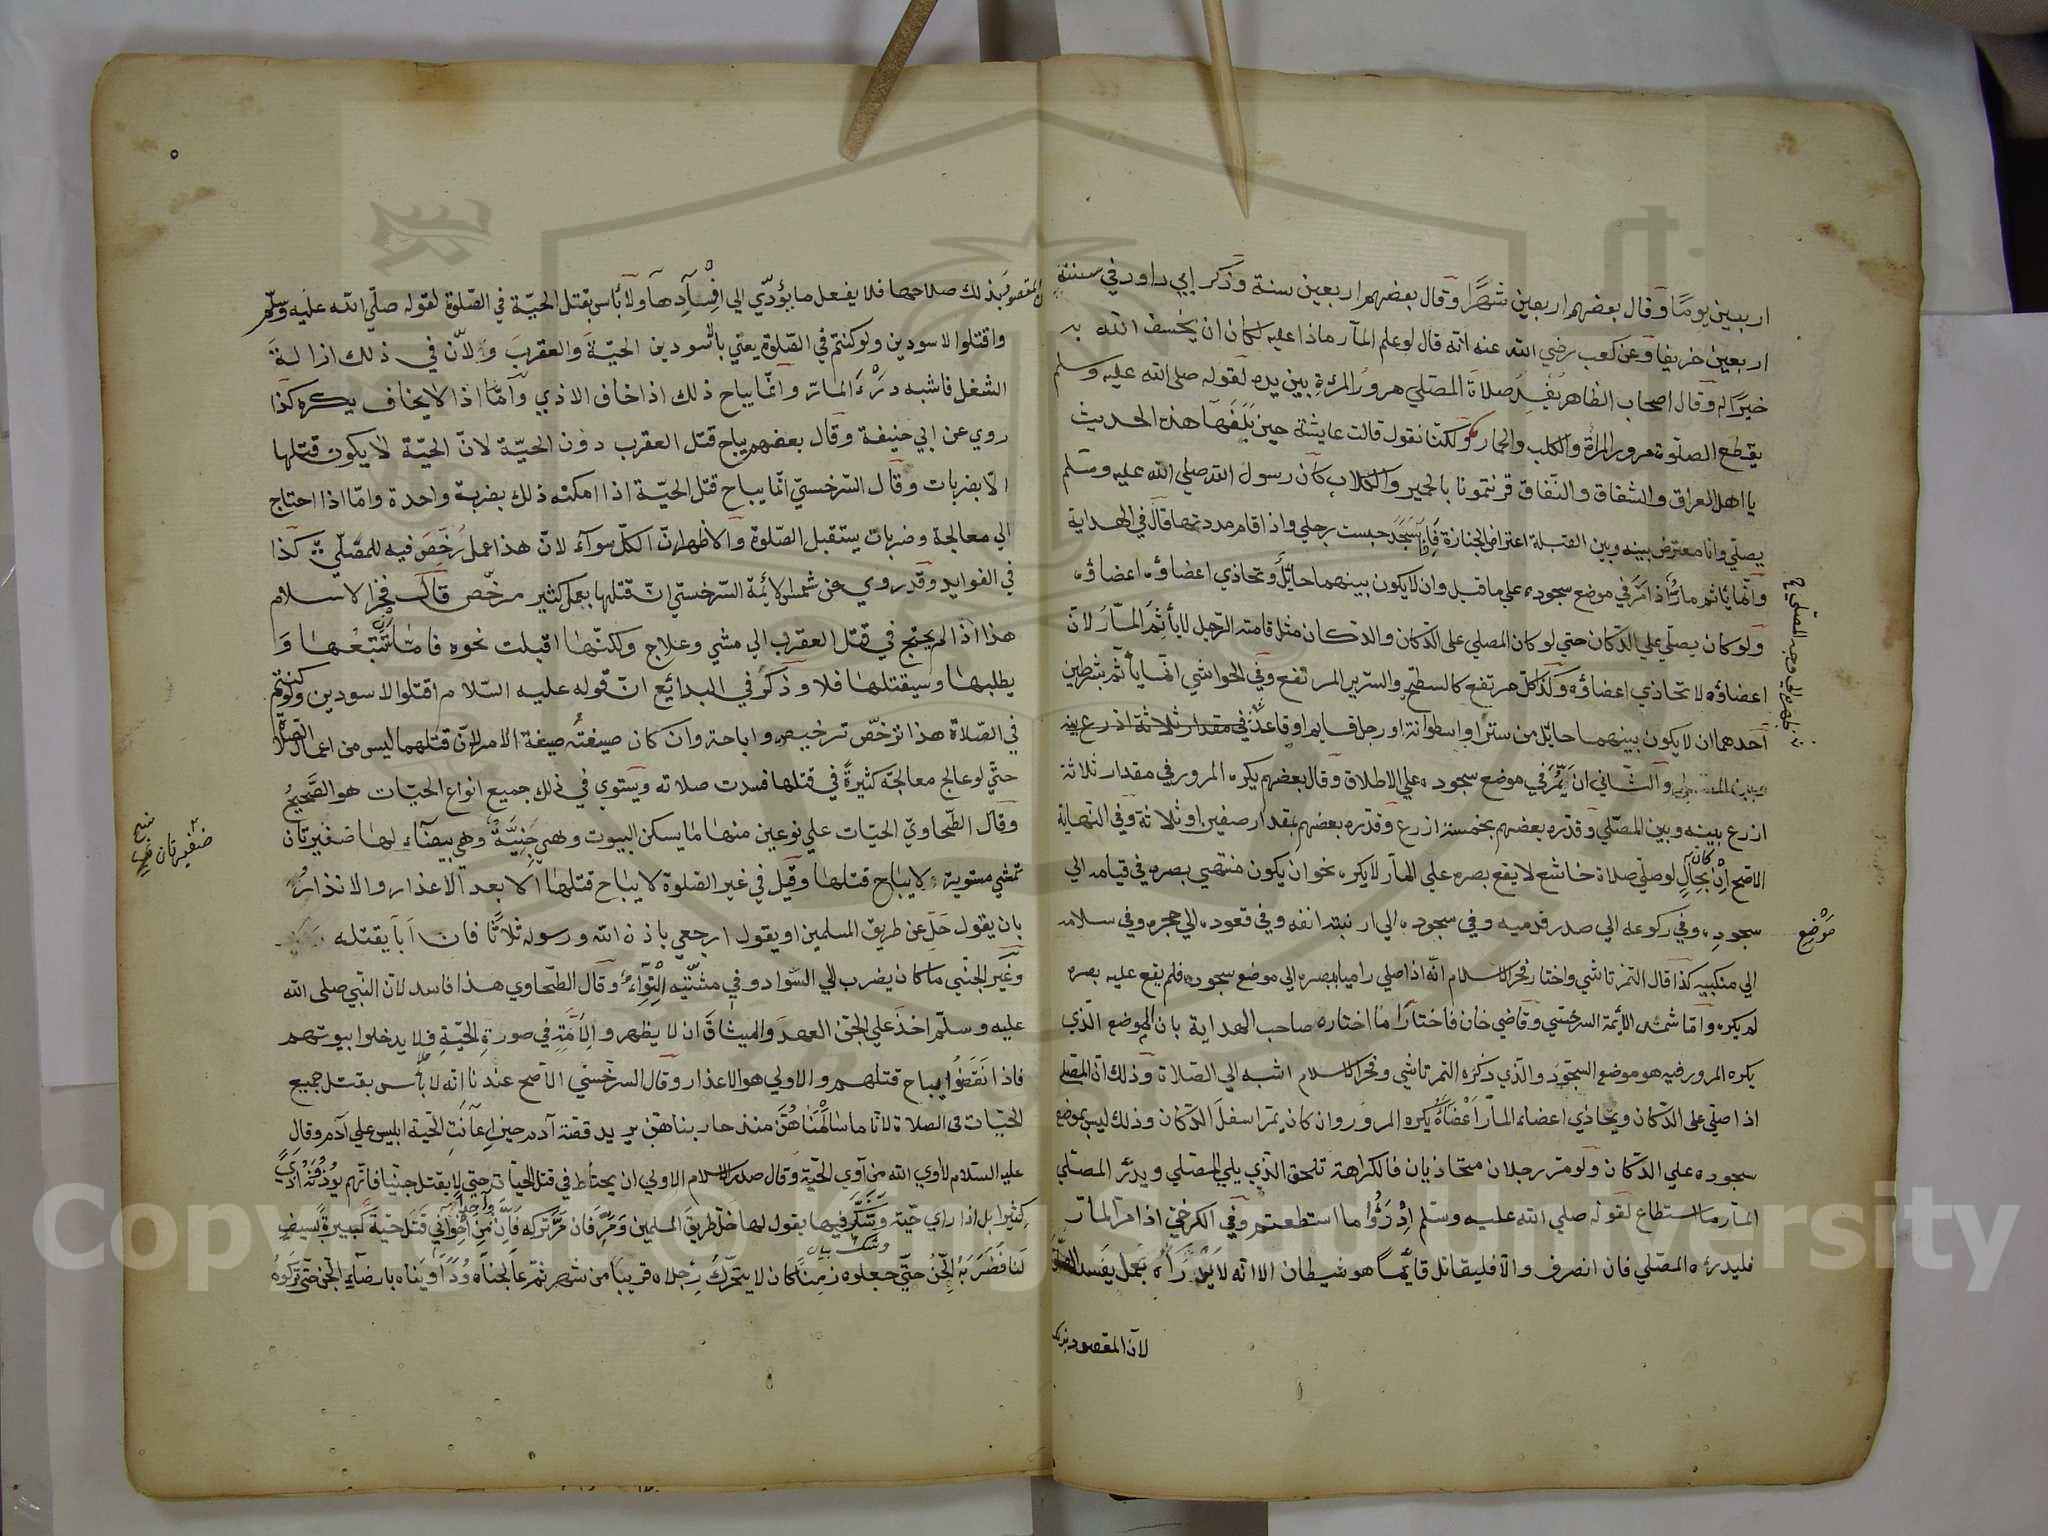 اربعين يومًا وقال بعضهم اربعين شهرًا وقال بعضهم اربعين سنة وذكر ابي داود في سننه
اربعين خريفا وعن كعب رضي الله عنه انه قال لو علم المآر ماذا عليه لكان ان يخسف الله به
خيرًا له وقال اصحاب الظاهر يفسد صلاة المصلي مرور المرءة بين يديه لقوله صلى الله عليه وسلم
يقطع الصلوة مرور المرأة والكلب والحمار ولكنا نقول قالت عايشة حين بلغها هذه الحديث
يا اهل العراق والشقاق والنفاق قرنتمونا بالحمير والكلاب كان رسول الله صلي الله عليه وسلم
يصلي وانا معترض بينه وبين القبلة اعتراض الجنازة فاذا سجد حبست رجلي واذا قام مددتها قال في الهداية
وانما ياثم مارٌّ اذا مرّ في موضع سجوده علي ما قيل وان لا يكون بينهما حايل وتحاذي اعضاؤه اعضاؤه
ولو كان يصلي علي الدكان حتي لو كان المصلي على الدكان والدكان مثل قامته الرجل لا يأثم المآر لانّ
اعضاؤه لا تحاذي اعضاؤه وكذا كل مرتفع كالسطح والسرير المرتفع وفي الحواشي انما يأثم بشرطين
احدهما ان لا يكون بينهما حايل من ستر او اسطوانة او رجل قايم او قاعد في مقدار ثلاثة اذرع بينه
والثاني ان يمرّ في موضع سجوده علي الاطلاق وقال بعضهم يكره المرور في مقدار ثلاثة
اذرع بينه وبين المصلي وقدّره بعضهم بخمسة اذرع وقدره بعضهم بمقدار صفين او ثلاثة وفي النهاية
الاصح ان كان بحال لو صلي صلاة خاشع لا يقع بصره علي المآر لا يكره نحو ان يكون منتهي بصره في قيامه الي
سجوده وفي ركوعه الي صدر قدميه وفي سجوده الي ارنبته انفه وفي قعوده الي حجره وفي سلامه
الي منكبيه كذا قال التمرتاشي واختار فخر الاسلام انه اذا صلي راميا بصره الي موضع سجوده فلم يقع عليه بصره
لم يكره وامّا شمس الأيمة السرخسي وقاضي خان فاختارا ما اختاره صاحب الهداية بان الموضع الذي
يكره المرور فيه هو موضع السجود والذي ذكره التمرتاشي وفخر الاسلام اشبه الي الصلاة وذلك ان المصلي
اذا صلي على الدكان ويحاذي اعضاء المآر أعضاءه يكره المرور وان كان يمر اسفل الدكان وذلك ليس بموضع
سجوده علي الدكان ولو مرّ رجلان متحاذيان فالكراهة تلحق الذي يلي المصلي ويدرء المصلي
المآر ما استطاع لقوله صلي الله عليه وسلم ادرؤا ما استطعتم وفي الكرخي اذا مر المآر
فليدرءه المصلي فان انصرف والا فليقاتل قايمًا هو شيطان الا انه لا يدرأه بعمل يفسد الصلوة
لان المقصود بذلك
موضع
ينظر الي وجه المصلي
٥
المقصود بذلك صلاحها فلا يفعل ما يؤدّي الي افسادها ولا بأس بقتل الحيّة في الصّلوة لقوله صلّي الله عليه وسلّم
واقتلوا الاسودين ولو كنتم في الصّلوة يعني بالاسودين الحيّة والعقرب ولانّ في ذلك ازالة
الشغل فاشبه درء المارّ وانّما يباح ذلك اذا خاف الاذي وامّا اذا لا يخاف يكره كذا
روي عن ابي حنيفة وقال بعضهم يباح قتل العقرب دون الحيّة لانّ الحيّة لا يكون قتلها
الّا بضربات وقال السّرخسيّ انّما يباح قتل الحيّة اذا امكنه ذلك بضربة واحدة وامّا اذا احتاج
الي معالجة وضربات يستقبل الصّلوة والاظهر انّ الكلّ سوآء لانّ هذا عمل رُخّص فيه للمصلّي كذا
في الفوايد وقد روي عن شمس الأيمّة السّرخسيّ انّ قتلها بعمل كثير مرخّص قال فخر الاسلام
هذا اذا لم يحتج في قتل العقرب الي مشي وعلاج ولكنّها اقبلت نحوه فامّا ان تتبعها و
يطلبها وسيقتلها فلا وذكر في البدايع انّ قوله عليه السّلام اقتلوا الاسودين ولو كنتم
في الصّلاة هذا ترخّص ترخيص واباحة وان كان صيغته صيغة الامر لانّ قتلهما ليس من اعمال الصلاة
حتّي لو عالج معالجة كثيرةً في قتلها فسدت صلاته ويستوي في ذلك جميع انواع الحيّات هو الصّحيح
وقال الطّحاويّ الحيّات علي نوعين منها ما يسكن البيوت وهي جنيّة وهي بيضآء لها ضفيرتان
تمشي مستوية لا يباح قتلها وقيل في غير الصّلوة لا يباح قتلها الا بعد الاعذار والانذار
بان يقول خلّ عن طريق المسلمين او يقول ارجعي باذن الله ورسوله ثلاثًا فان ابا يقتله
وغير الجنّي ما كان يضرب الي السّواد وفي مشيّته التواء وقال الطّحاوي هذا فاسد لانّ النّبي صلى الله
عليه وسلّم اخذ علي الجنّ العهد والميثاق ان لا يظهر والامّته في صورة الحيّة ولا يدخلوا بيوتهم
فاذا نقضوا يباح قتلهم والاولي هو الاعذار وقال السرخسي الاصح عندنا انّه لا بأس بقتل جميع
الحيّات في الصلاة لانّا ما سالمناهنّ منذ حاربناهنّ يريد قصّة آدم حين اعانت الحيّة ابليس علي آدم وقال
عليه السّلام لا اوي الله من آوي الحيّة وقال صدر الاسلام الاولي ان يحتاط في قتل الحيّات حتي لا يقتل جنيًّا فانّهم يؤذونه اذي
كثيرا بل اذا راي حيّة وتشكّك فيها يقول لها خلّ طريق المسلمين ومُرّ فان مرّ تركه فانّ من اخواني قتل حيّة كبيرة بسيف
لنا فضربه الجنّ حتّي جعلوه زمنًا كان لا يتحرّك رجلاه قريبًا من شهر ثم عالجناه وداويناه بارضاء الجن حتي تركوه
ضفيرتان
نسخ
Copyright © King Saud University